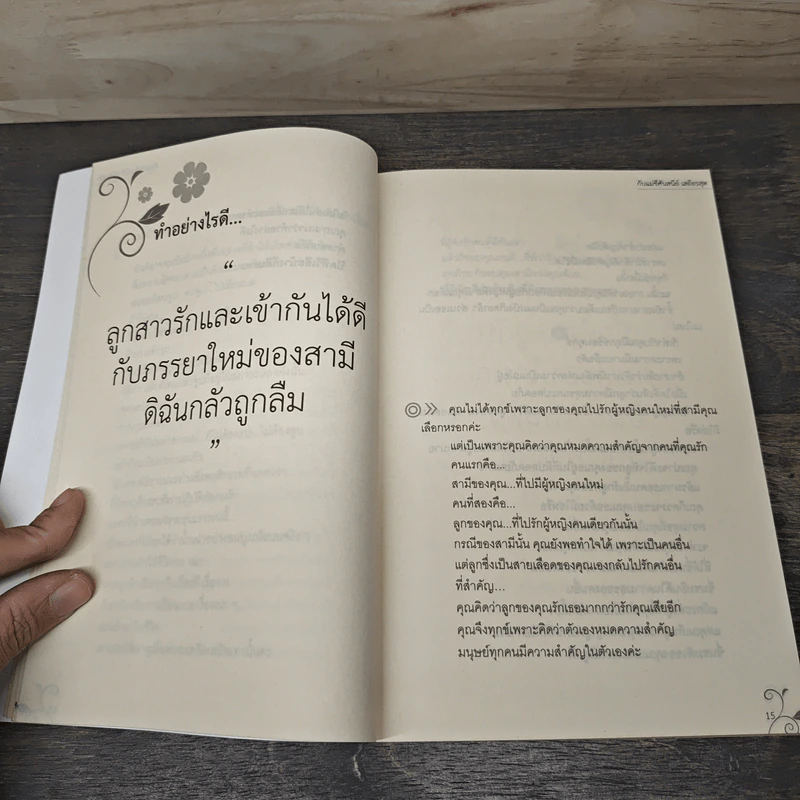 ทำอย่างไรดี...
“
ลูกสาวรักและเข้ากันได้ดี
กับภรรยาใหม่ของสามี
ดิฉันกลัวถูกลืม
”
กับแม่ชีศันสนีย์ เสถียรสุต
คุณไม่ได้ทุกข์เพราะลูกของคุณไปรักผู้หญิงคนใหม่ที่สามีคุณ
เลือกหรอกค่ะ
แต่เป็นเพราะคุณคิดว่าคุณหมดความสำคัญจากคนที่คุณรัก
คนแรกคือ...
สามีของคุณ...ที่ไปมีผู้หญิงคนใหม่
คนที่สองคือ...
ลูกของคุณ...ที่ไปรักผู้หญิงคนเดียวกันนั้น
กรณีของสามีนั้น คุณยังพอทำใจได้ เพราะเป็นคนอื่น
แต่ลูกซึ่งเป็นสายเลือดของคุณเองกลับไปรักคนอื่น
ที่สำคัญ...
คุณคิดว่าลูกของคุณรักเธอมากกว่ารักคุณเสียอีก
คุณจึงทุกข์เพราะคิดว่าตัวเองหมดความสำคัญ
มนุษย์ทุกคนมีความสำคัญในตัวเองค่ะ
15